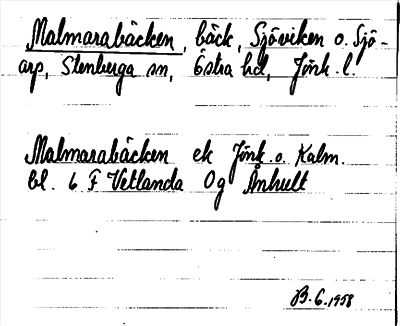 Malmarabäcken, bäck, Sjöviken o. Sjö-
arp, Stenberga sn, Östra hd, Jönk. l.
Malmarabäcken ek Jönk. o. Kalm.
bl. 6 F Vetlanda Og Ånhult
B. G. 1958